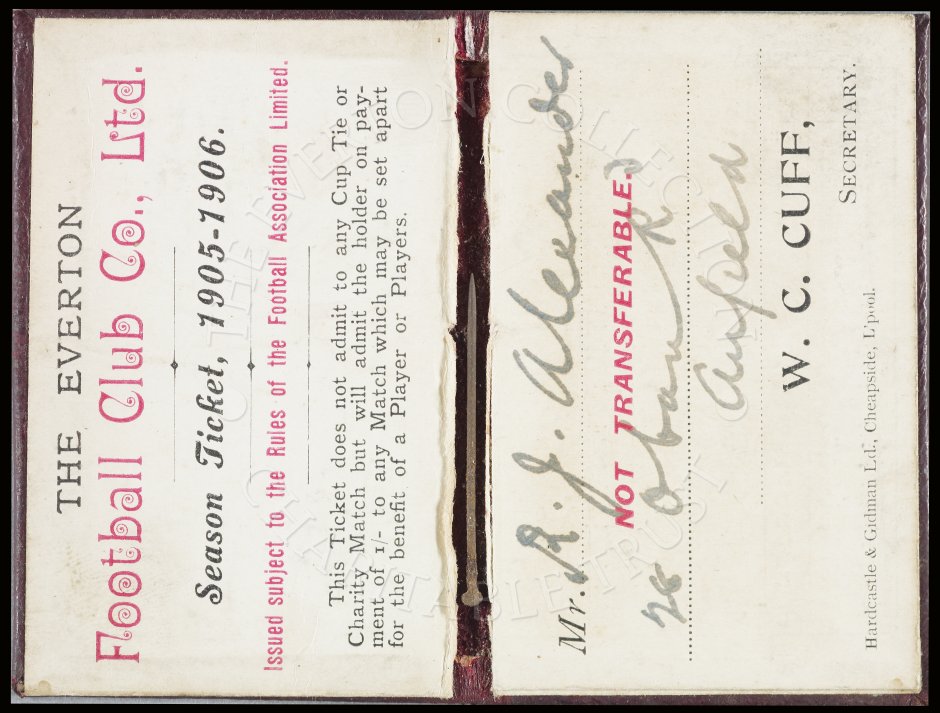 THE EVERTON
Football Club Co., Ltd.
Season Ticket, 1905-1906.
Issued subject to the Rules of the Football Association Limited.
This Ticket does not admit to any Cup Tie or
Charity Match but will admit the holder on pay-
ment of 1/- to any Match which may be set apart
for the benefit of a Player or Players.
Mr. R. J. Alexander
NOT TRANSFERABLE.
Oban Rd
Anfield
W. C. CUFF,
SECRETARY.
Hardcastle & Gidman Ld., Cheapside, L'pool.
THE EVERTON COLLECTION
CHARITABLE TRUST